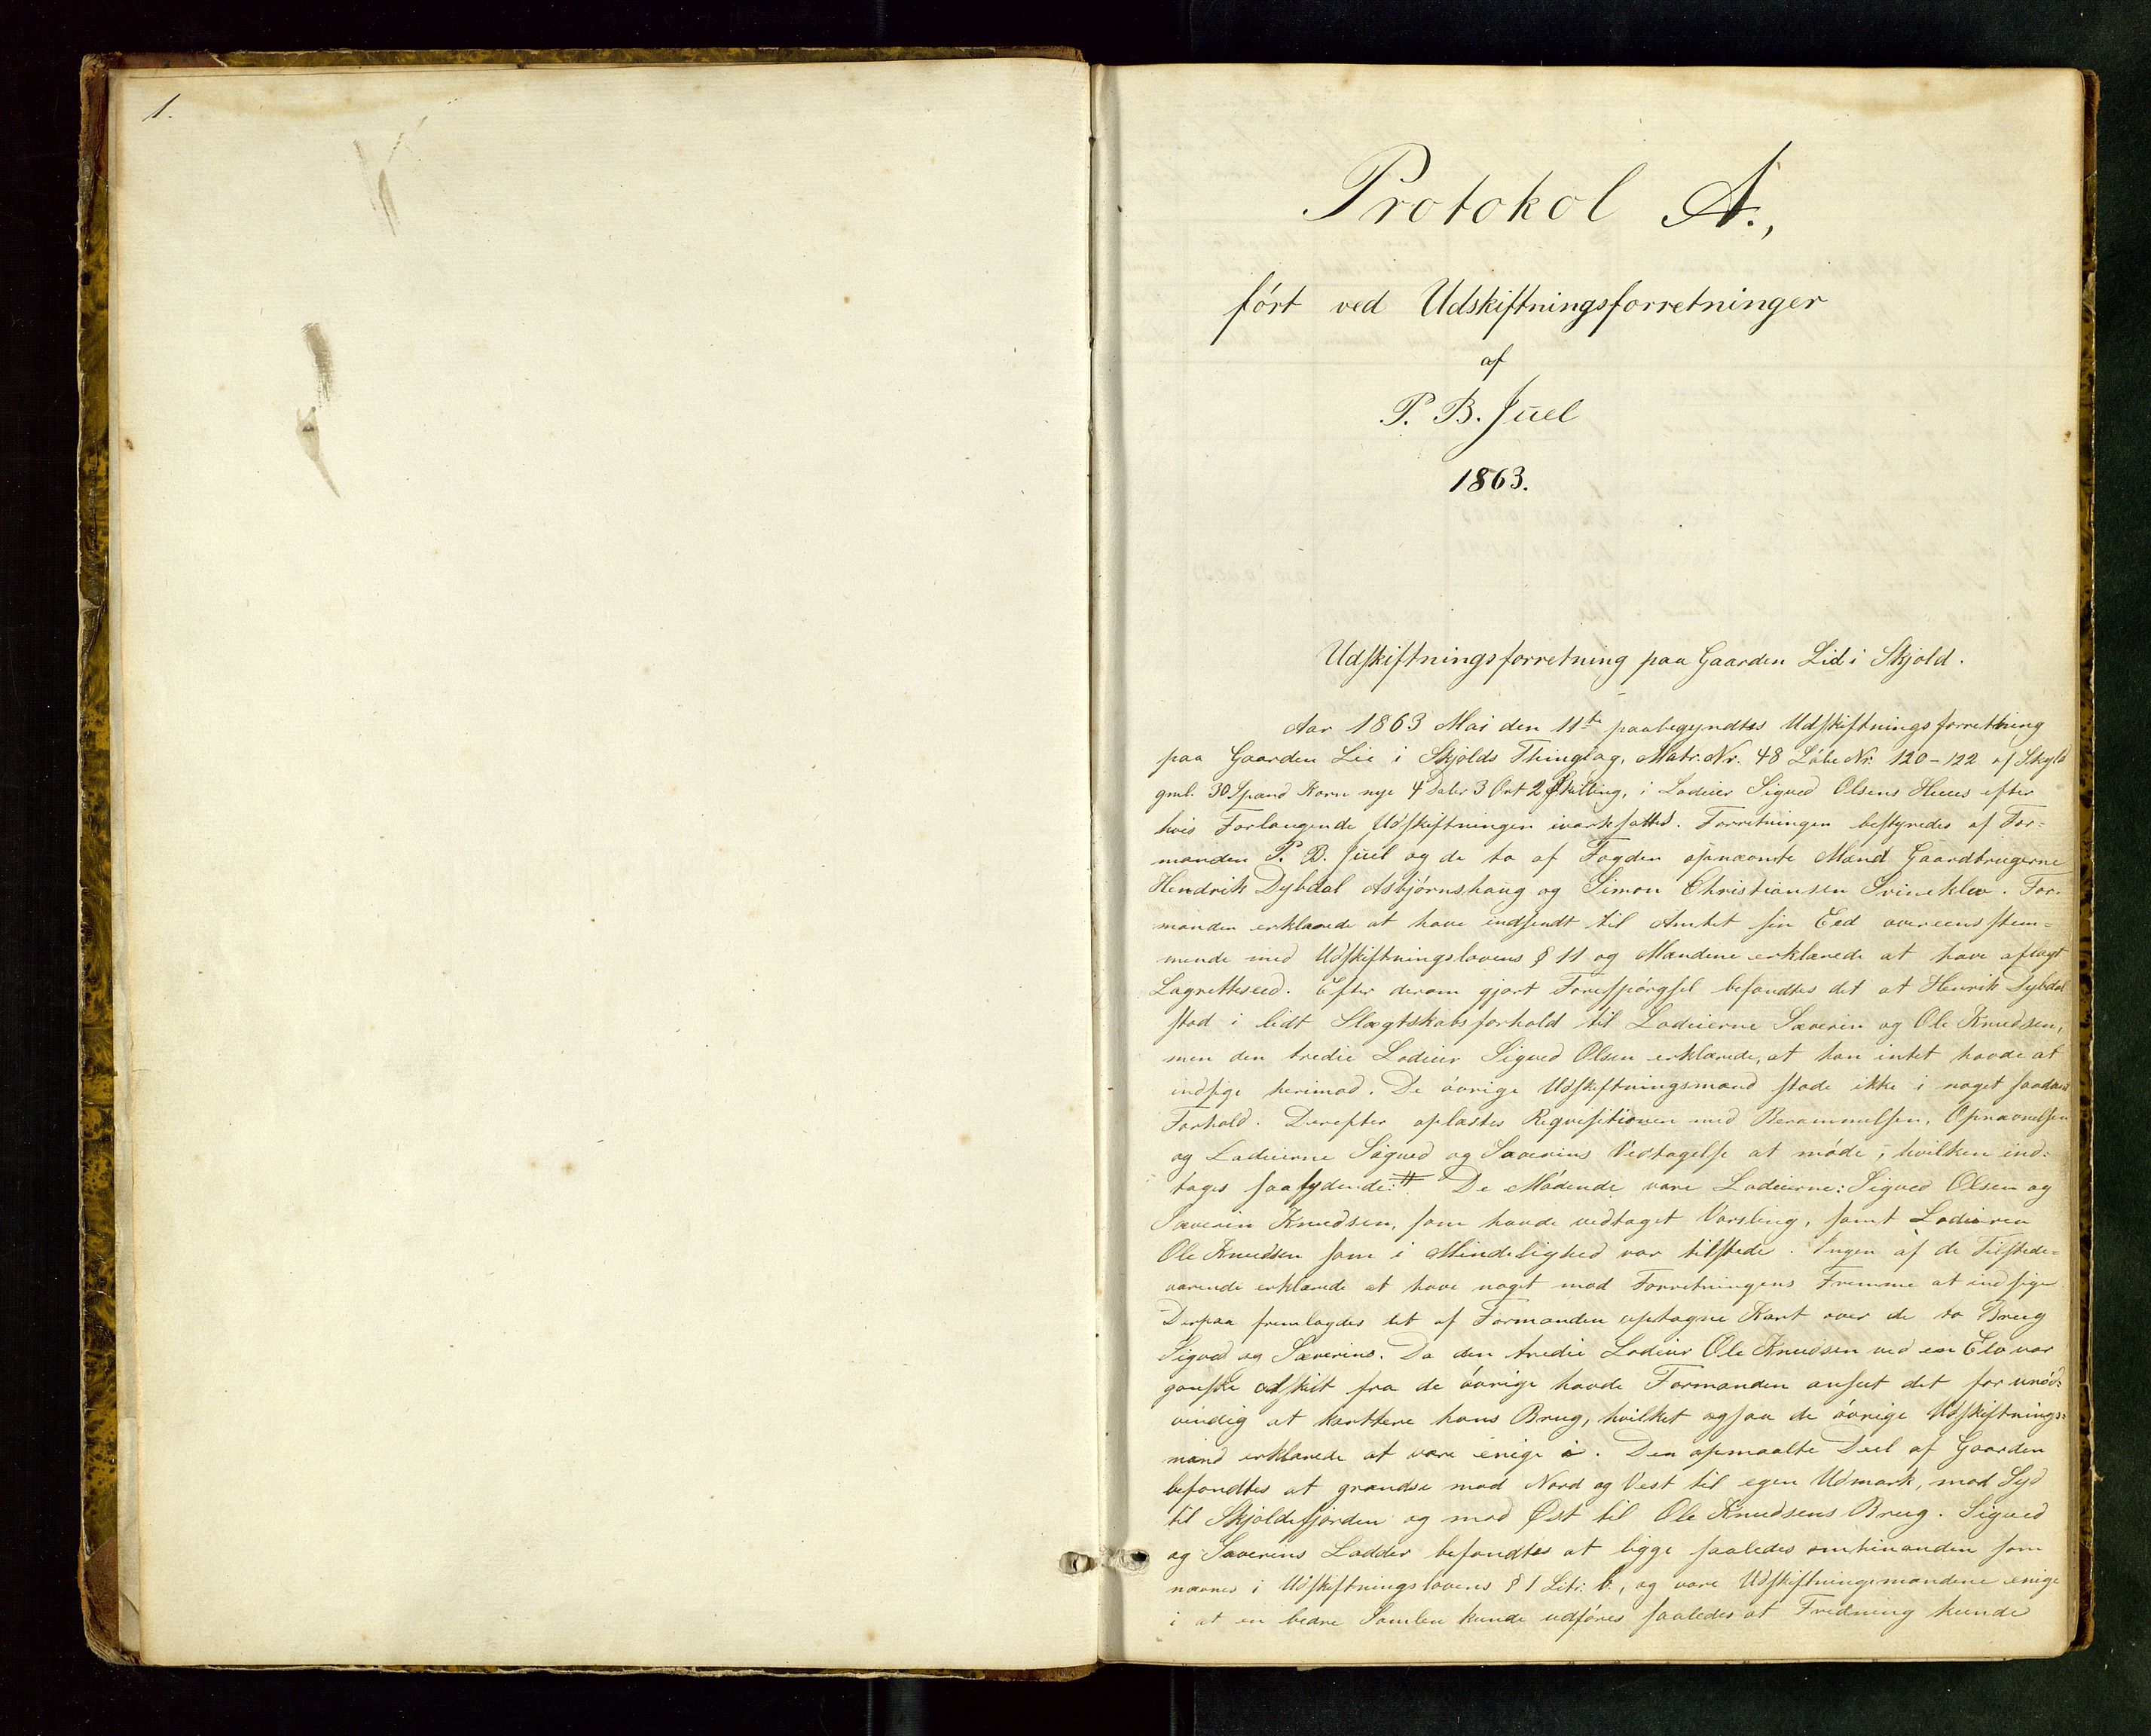 1.
Protokol A.,
ført ved Udskiftningsforretninger
af
P. B. Juel
1863.
Udskiftningsforretning paa Gaarden Lid i Skjold.
Aar 1863 Mai den 11te paabegyndtes Udskiftningsforretning
paa Gaarden Lie i Skjolds Thinglag, Matr. Nr. 48 Løbe Nr. 120-122 af Skyld
gml. 30 Spand Korn nye 4 Daler 3 Ort 2 Skilling, i Lodeier Sigved Olsens Huus efter
hvis Forlangende Udskiftningen iværksattes. Forretningen bestyredes af For-
manden P. B. Juel og de to af Fogden opnævnte Mænd Gaardbrugerne
Hendrik Dybdal Asbjørnshaug og Simon Christiansen Svineklev. For-
manden erklærede at have indsendt til Amtet sin Eed overeensstem-
mende med Udskiftningslovens § 11 og Mændene erklærede at have aflagt
Lagretteseed. Efter derom gjort Forespørgsel befandtes det at Henrik Dybdal
stod i lidt Slægtskabsforhold til Lodeierne Sæverin og Ole Knudsen,
men den tredie Lodeier Sigved Olsen erklærede, at han intet havde at
indsige herimod. De øvrige Udskiftningsmænd stode ikke i noget saadant
Forhold. Derefter oplæstes Reqvisitionen med Berammelsen, Opnævnelsen
og Lodeierne Sigved og Sæverins Vedtagelse at møde, hvilken ind-
tages saalydende: # De Mødende vare Lodeierne: Sigved Olsen og
Sæverin Knudsen, som havde vedtaget Varsling, samt Lodeieren
Ole Knudsen som i Mindelighed var tilstede. Ingen af de Tilstede-
værende erklærede at have noget mod Forretningens Fremme at indsige
Derpaa fremlagdes det af Formanden optagne Kart over de to Brug
Sigved og Sæverins. Da den tredie Lodeier Ole Knudsen ved en Elv var
ganske adskilt fra de øvrige havde Formanden anseet det for unød-
vendig at karttere hans Brug, hvilket ogsaa de øvrige Udskiftnings-
mænd erklærede at være enige i. Den opmaalte Deel af Gaarden
befandtes at grændse mod Nord og Vest til egen Udmark, mod Syd
til Skjoldefjorden og mod Øst til Ole Knudsens Brug. Sigved
og Sæverins Lodder befandtes at ligge saaledes omhinanden som
nævnes i Udskiftningslovens § 1 Litr. b., og vare Udskiftningsmændene enige
i at en bedre Samlen kunde udføres saaledes at Fredning kunde